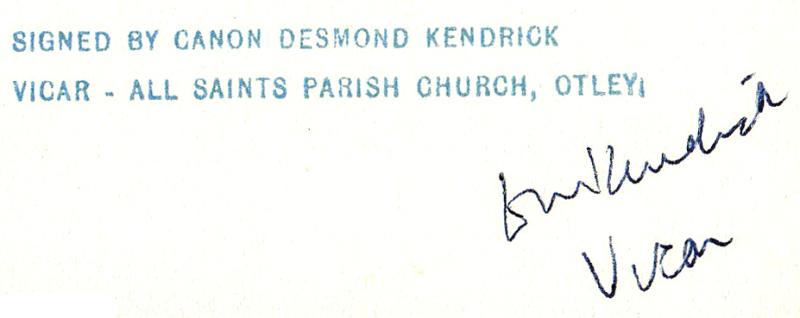 SIGNED BY CANON DESMOND KENDRICK
VICAR - ALL SAINTS PARISH CHURCH, OTLEY
Kendrick
Vicar